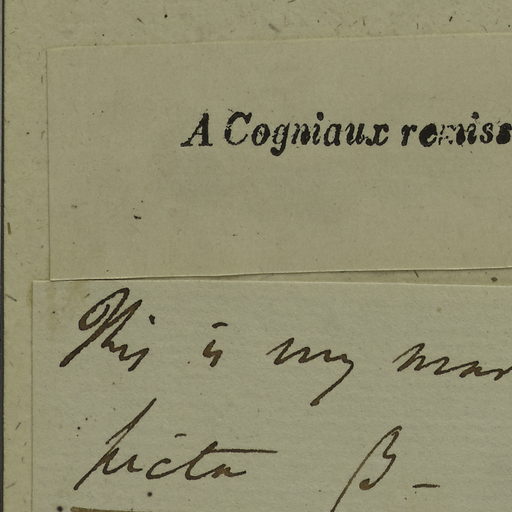 A Cogniaux remiss
This is my mar
picta β –